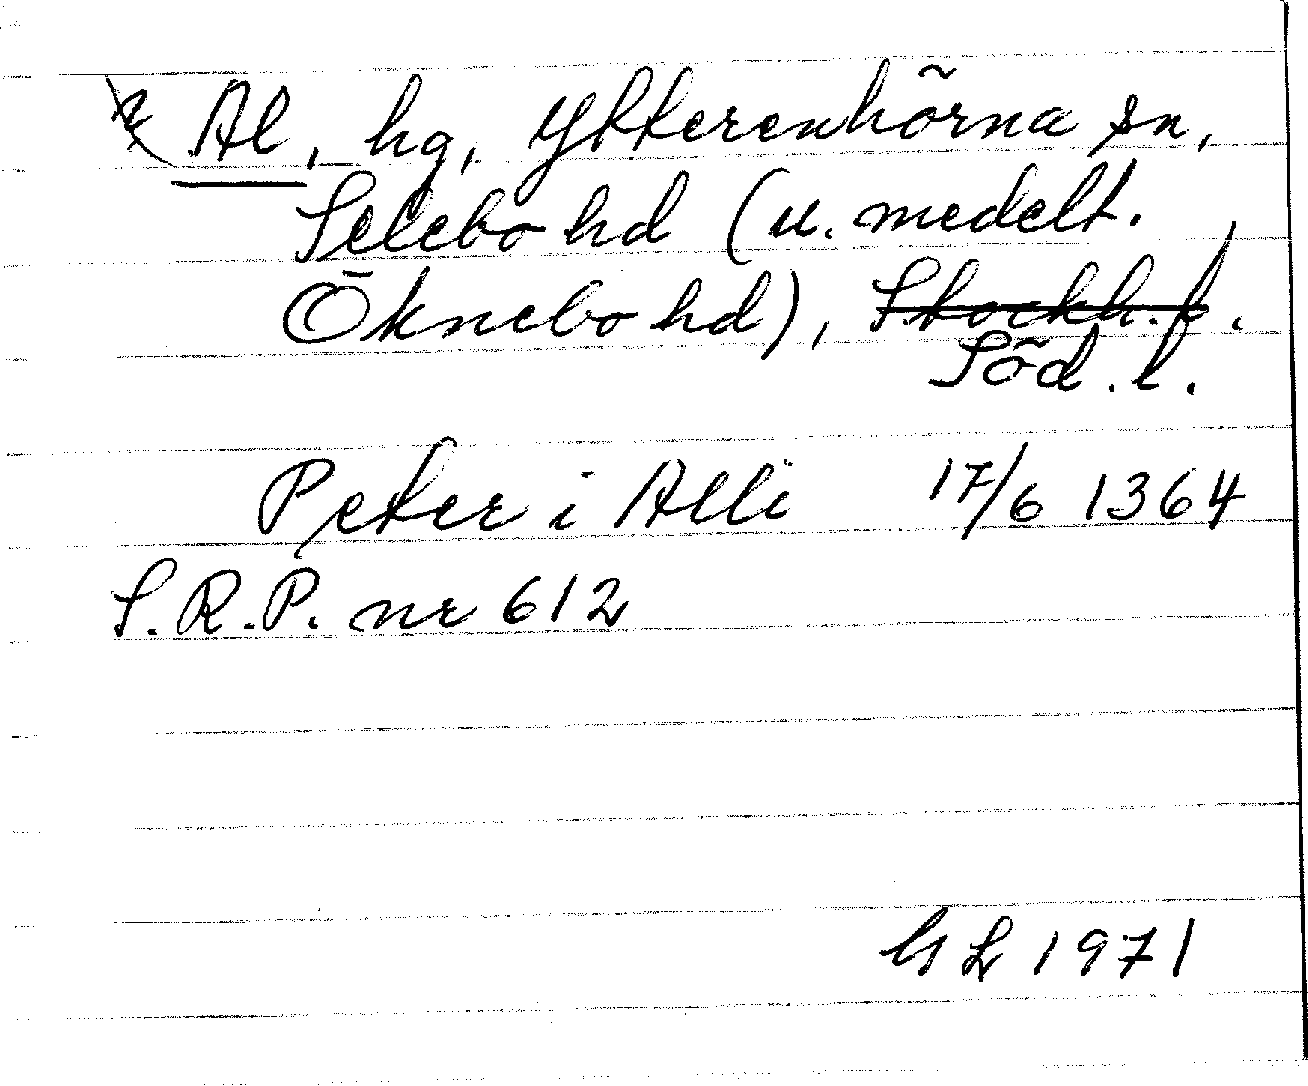 Al, hg, Ytterenhörna sn,
Selebo hd (u. medelt.
Öknebo hd), Stockh. l.
Söd. l.
Peter i Alli 17/6 1364
S.R.P. nr 612
GL 1971